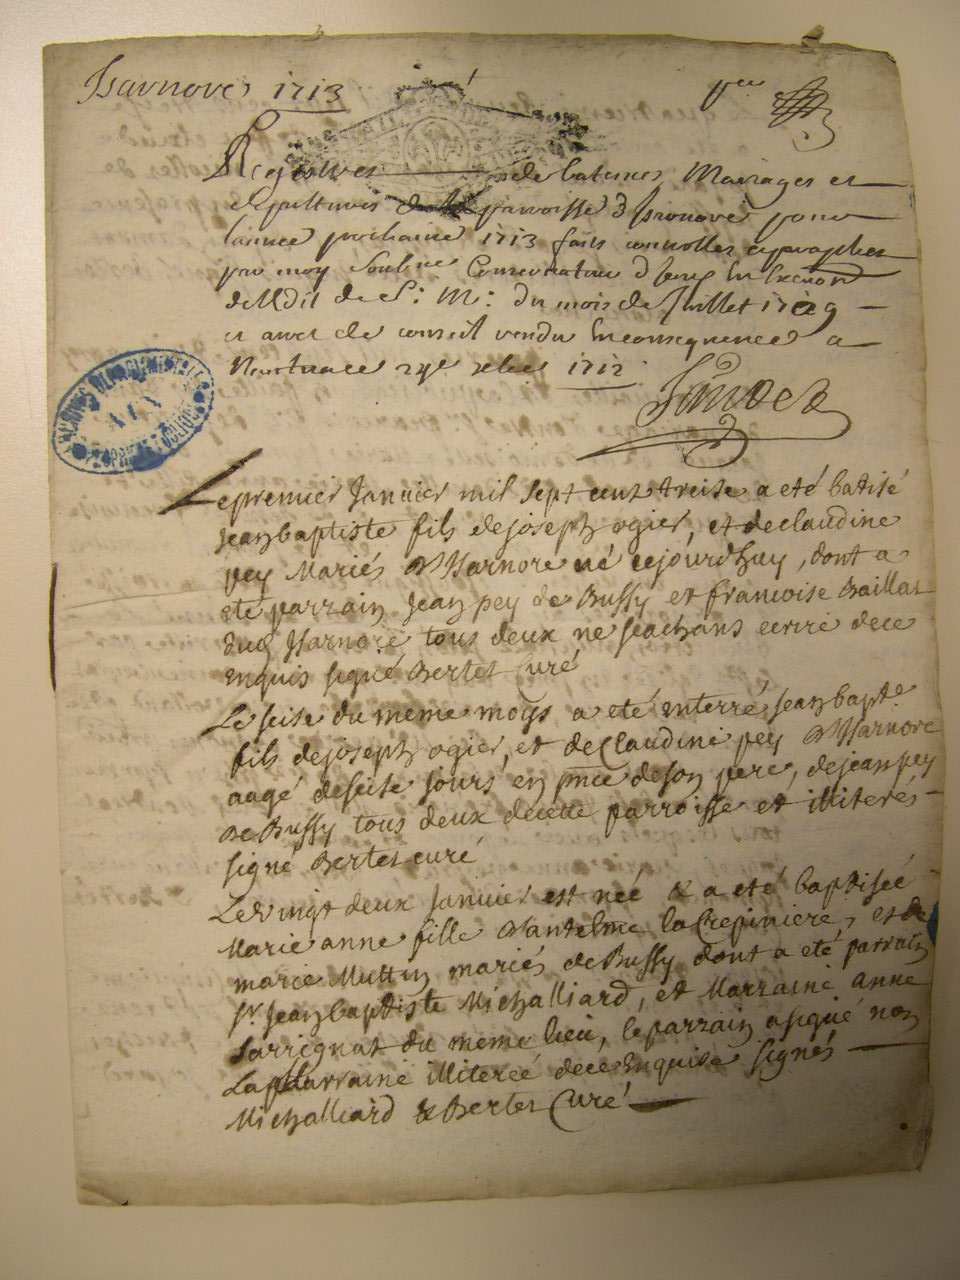 Isarnores 1713
Registres de batemes Mariages et
sepultures de la parroisse d Isarnore pour
lannee prochaine 1713 fait cottes et paraphes
par moy Soub.né Conservateur d Iceux En execution
de Ledit de S: M: du mois de Juillet 1709
et arret de conseil rendu En consequence a
Nantuace 24e xbre 1712
ARCHIVES DEPARTEMENTALES
AIN
PROPRIETE PUBLIQUE
Le premier Janvier mil sept cent treise a eté batisé
jean baptiste fils de joseph ogier, et de claudine
pey Mariés d'Isarnore né cejourdhuy, dont a
eté parrain jean pey de Bussy et francoise Baillat
dud Isarnore tous deux ne scachans ecrire de ce
enquis signé Bertet Curé
Le seise du meme moys a eté enterré jean bapt.e
fils de joseph ogier, et de Claudine pey d'Isarnore
aagé de seise jours en pnce de son pere, de jean pey
de Bussy tous deux de cette parroisse et illiterés
signé Bertet curé
Le vingt deux Janvier est née & a eté baptisée
Marie anne fille d'antelme la Crepiniere, et de
marie Muttin mariés de Bussy dont a eté parrain
Sr. jean baptiste Michalliard, et Marraine anne
Sarrignat du meme lieu, le parrain a signé non
La Marraine illiterée de ce Enquise signés
Michalliard & Bertet Curé